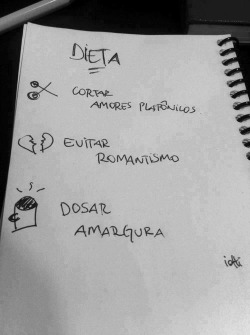 DIETA
CORTAR
AMORES PLATÔNICOS
EVITAR
ROMANTISMO
DOSAR
AMARGURA